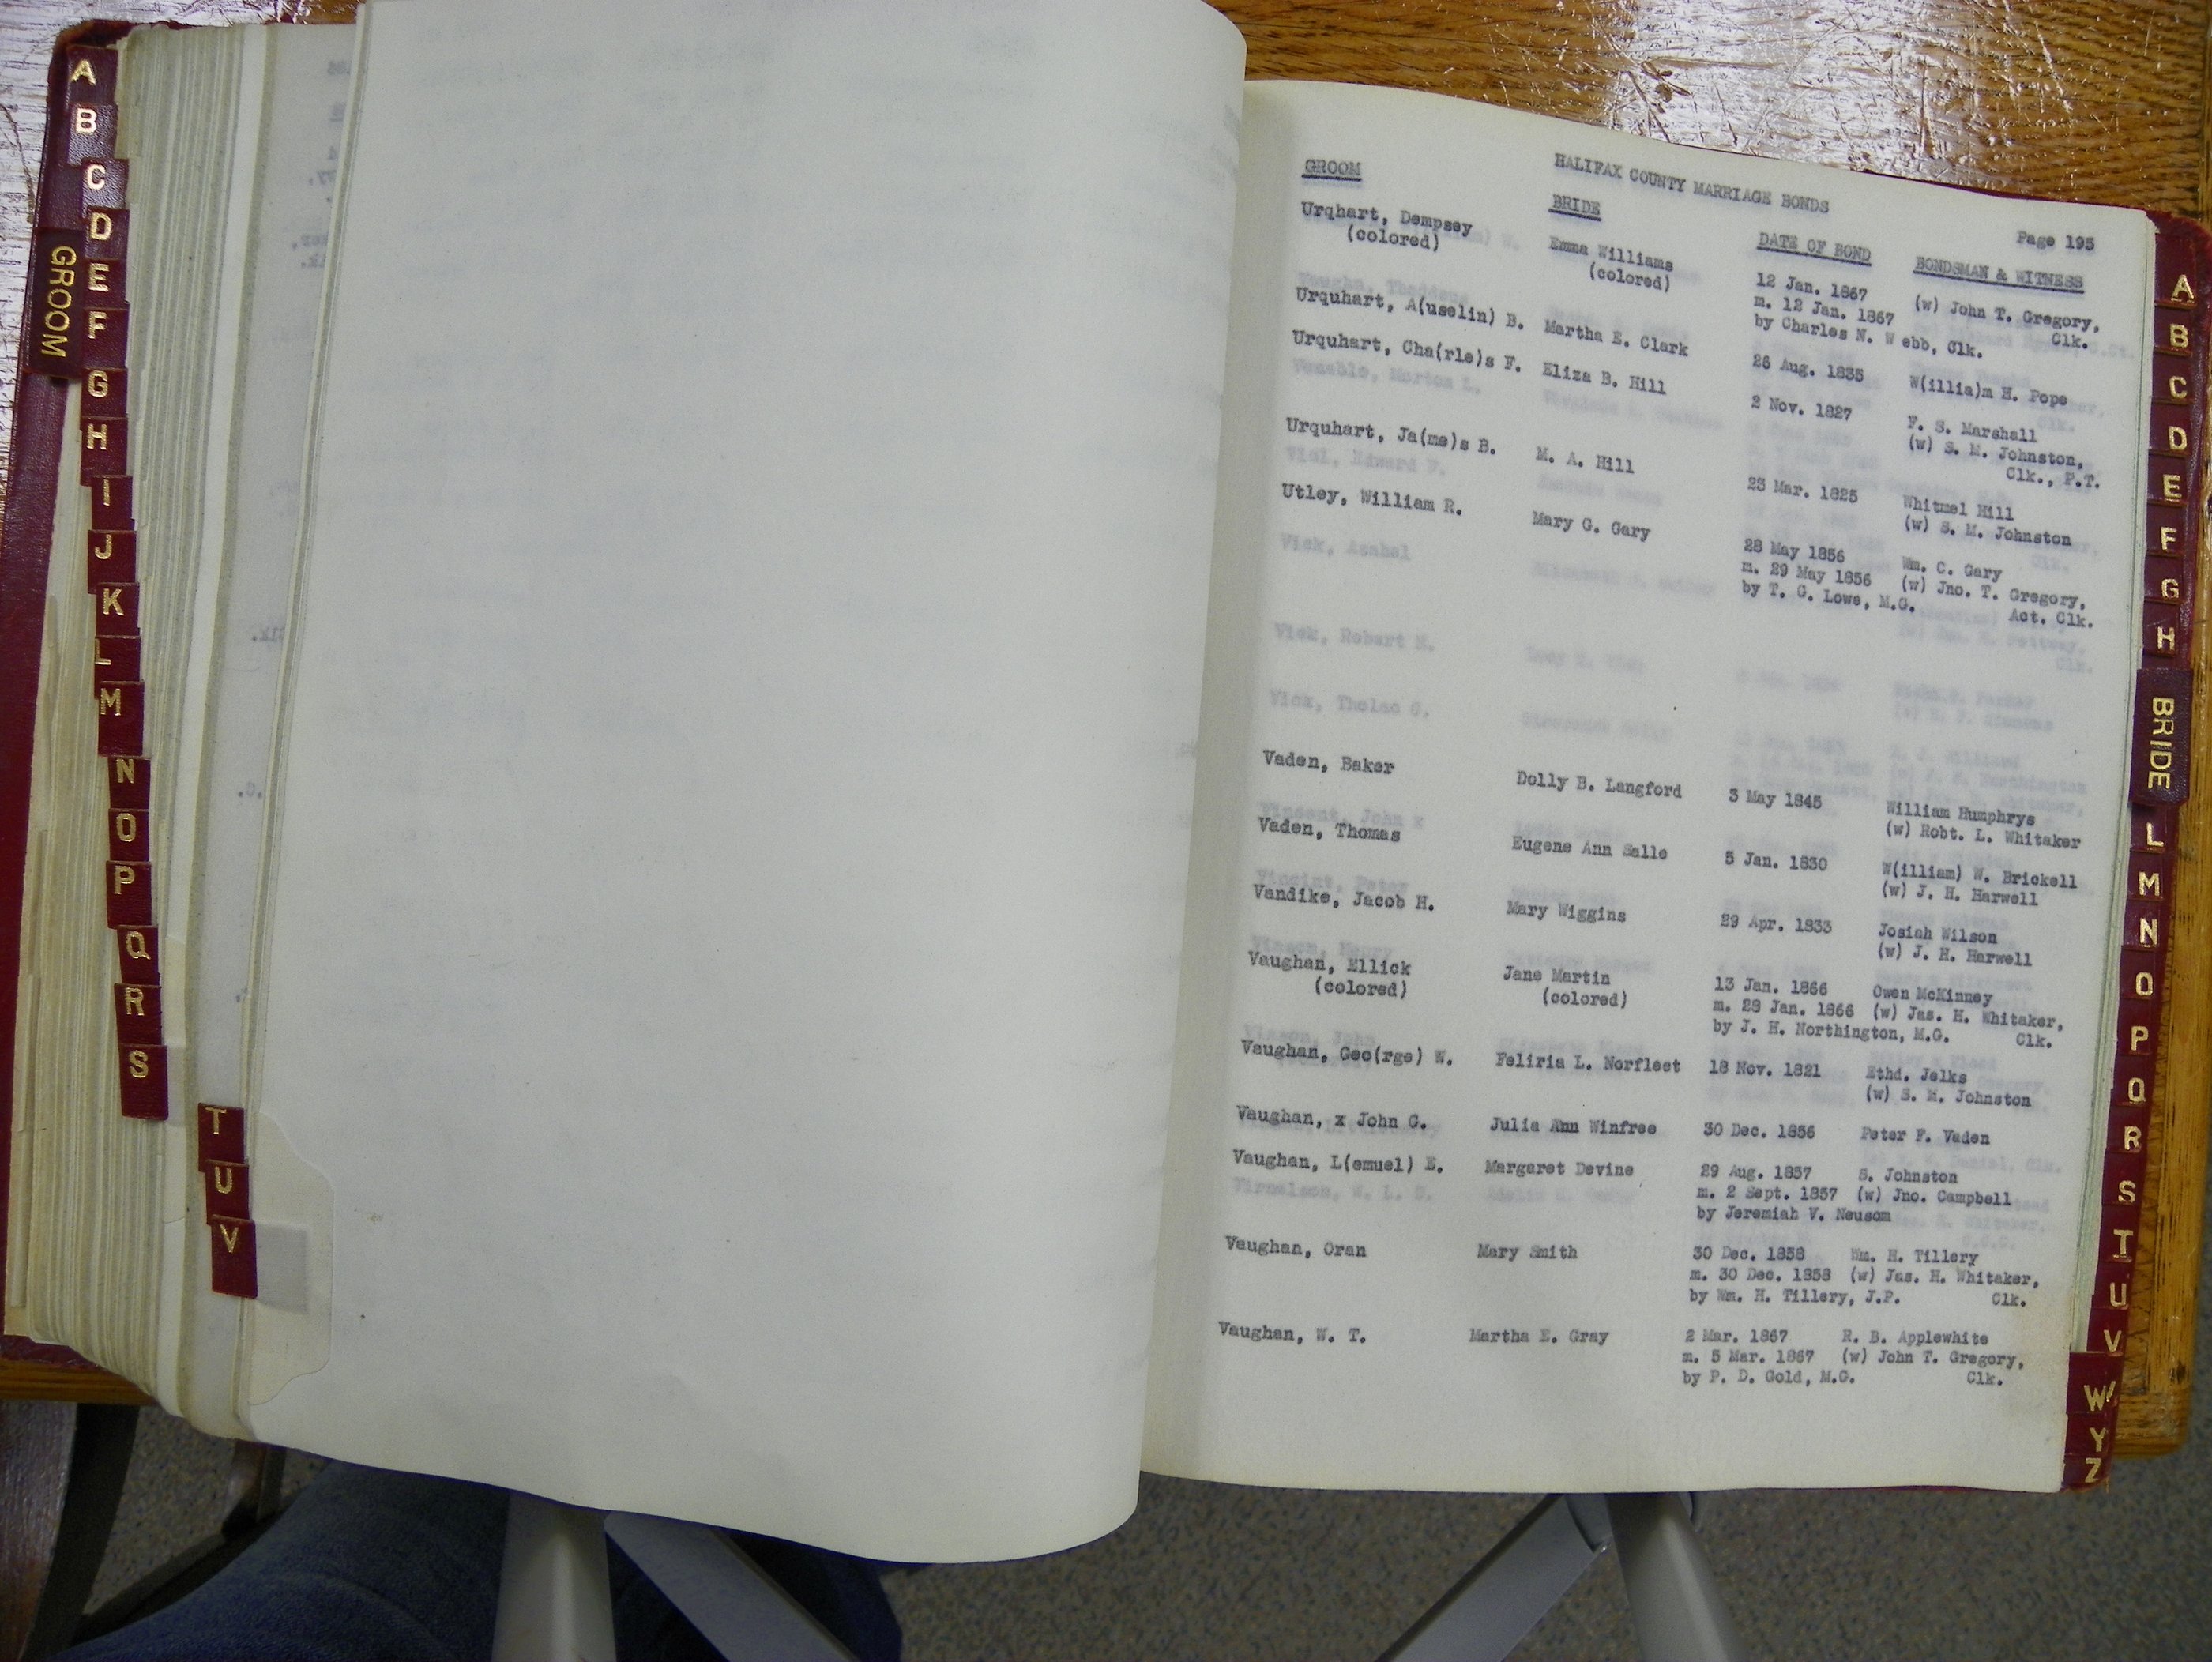 A
B
C
D
E
F
G
H
I
J
K
L
M
N
O
P
Q
R
S
T
U
V
GROOM
HALIFAX COUNTY MARRIAGE BONDS
Page 195
GROOM BRIDE DATE OF BOND BONDSMAN & WITNESS
Urqhart, Dempsey Emma Williams 12 Jan. 1867 (w) John T. Gregory,
(colored) (colored) m. 12 Jan. 1867 Clk.
by Charles N. Webb, Clk.
Urquhart, A(uselin) B. Martha E. Clark 26 Aug. 1835 W(illia)m H. Pope
Urquhart, Cha(rle)s F. Eliza B. Hill 2 Nov. 1827 F. S. Marshall
(w) S. M. Johnston,
Clk., P.T.
Urquhart, Ja(me)s B. M. A. Hill 23 Mar. 1825 Whitmel Hill
(w) S. M. Johnston
Utley, William R. Mary G. Gary 28 May 1856 Wm. C. Gary
m. 29 May 1856 (w) Jno. T. Gregory,
by T. G. Lowe, M.G. Act. Clk.
Vaden, Baker Dolly B. Langford 3 May 1845 William Humphrys
(w) Robt. L. Whitaker
Vaden, Thomas Eugene Ann Salle 5 Jan. 1830 W(illiam) W. Brickell
(w) J. H. Harwell
Vandike, Jacob H. Mary Wiggins 29 Apr. 1833 Josiah Wilson
(w) J. H. Harwell
Vaughan, Ellick Jane Martin 13 Jan. 1866 Owen McKinney
(colored) (colored) m. 28 Jan. 1866 (w) Jas. H. Whitaker,
by J. H. Northington, M.G. Clk.
Vaughan, Geo(rge) W. Feliria L. Norfleet 18 Nov. 1821 Ethd. Jelks
(w) S. M. Johnston
Vaughan, x John G. Julia Ann Winfree 30 Dec. 1856 Peter F. Vaden
Vaughan, L(emuel) E. Margaret Devine 29 Aug. 1857 S. Johnston
m. 2 Sept. 1857 (w) Jno. Campbell
by Jeremiah V. Neusom
Vaughan, Oran Mary Smith 30 Dec. 1858 Wm. H. Tillery
m. 30 Dec. 1858 (w) Jas. H. Whitaker,
by Wm. H. Tillery, J.P. Clk.
Vaughan, W. T. Martha E. Gray 2 Mar. 1867 R. B. Applewhite
m. 5 Mar. 1867 (w) John T. Gregory,
by P. D. Gold, M.G. Clk.
A
B
C
D
E
F
G
H
BRIDE
L
M
N
O
P
Q
R
S
T
U
V
W
Y
Z